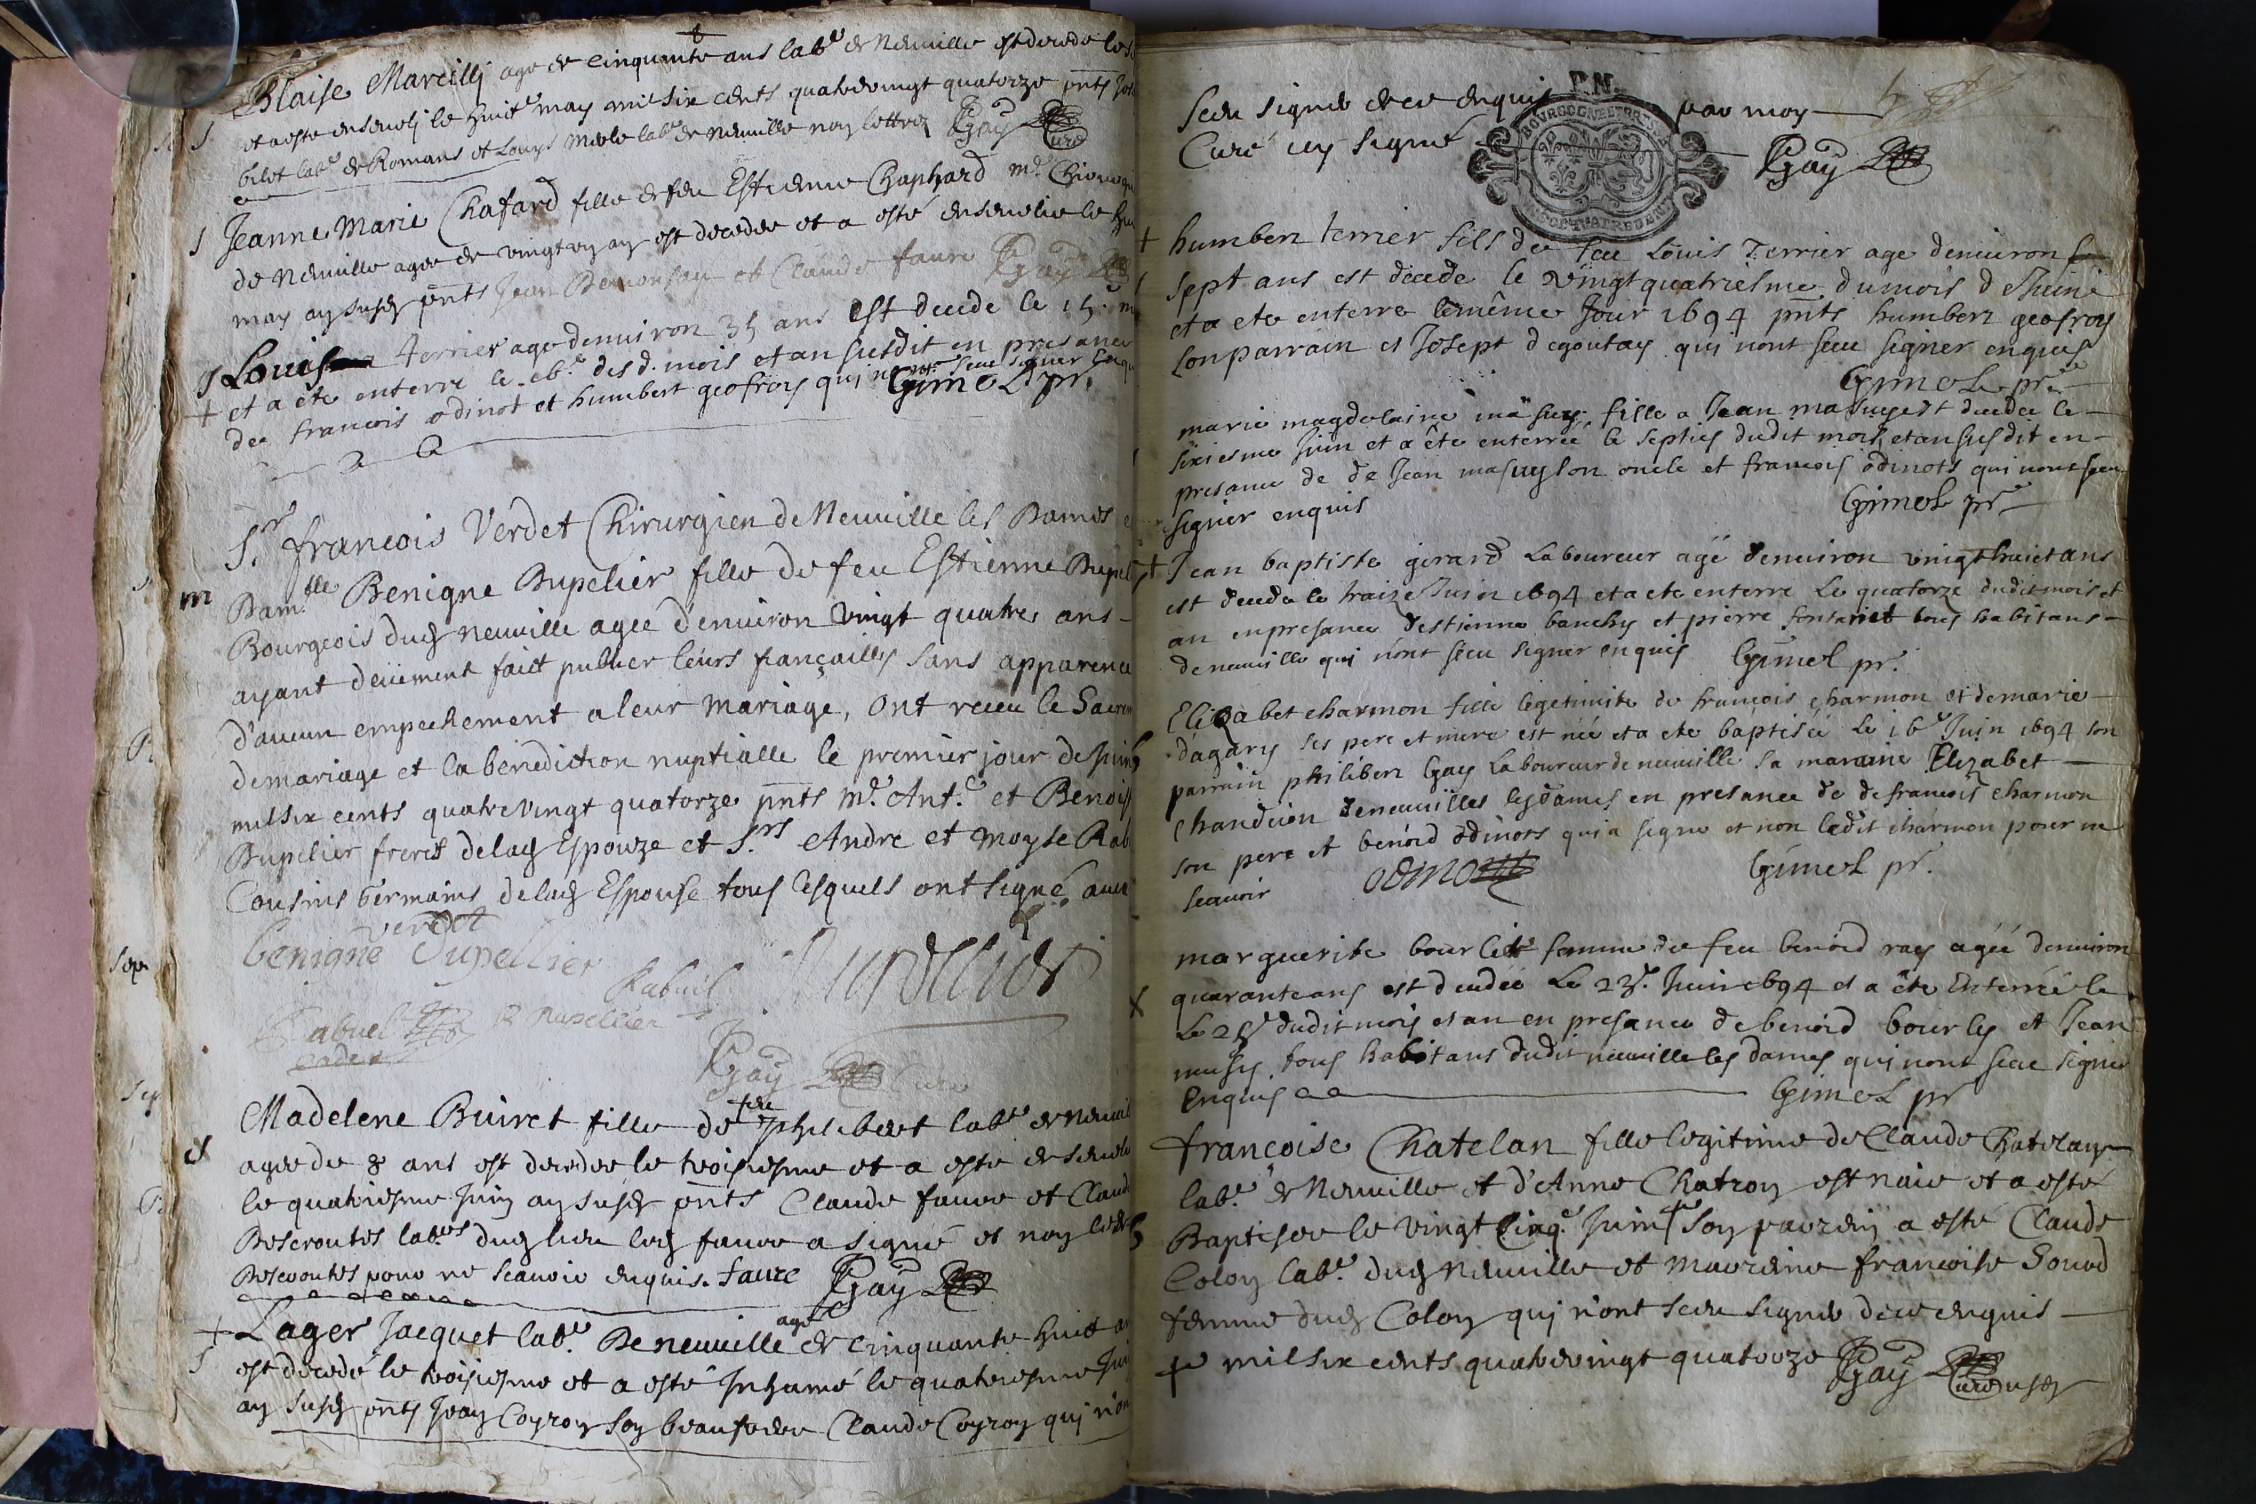 Blaise Marcilly age de cinquante ans lab.r de Neuville est decede le
et a esté enseveli le huit.e may mil six cents quatrevingt quatorze pnts
bilot lab.r de Romans et Louys Merle lab.r de Neuville non lettrez PGay Curé
Jeanne Marie Chafard fille de feu Estienne Chaphard m.e
de Neuville agee de vingt un an est decedee et a esté ensevelie le
may an susd pnts Jean Demonsau et Claude faure PGay
Louis terrier age denuiron 35 ans est decede le 15.e
et a ete enterre le des d. mois et an susdit en presance
de francois odinot et humbert geofroy qui n'ont sceu signer
Gimel pr.
S.r francois Verdet Chirurgien de Neuuille les Dames
Dam.lle Benigne Dupelier fille de feu Estienne
Bourgeois dud neuuille agée d'enuiron vingt quatre ans
ayant deüement faict publier leurs fiançailles sans apparence
d'aucun empechement a leur mariage, ont receu le
de mariage et la benediction nuptialle le premier jour de
mil six cents quatre vingt quatorze pnts m.e Ant.e et
Dupelier freres de lad Espouze et S.rs Andre et Moyse
Cousins Germains de lad Espouse tous lesquels ont signé
verdet
benigne Dupellier
Rabuel Dupellier
Rabuel
cadet
PGay Curé
Madelene Buiret fille de feu philebert lab.r de
agee de 8 ans est decedee le troisiesme et a esté
le quatriesme Juin an susd pnts Claude faure et
Descroutes lab.rs dud lieu led faure a signé et non
Descroutes pour ne scauoir enquis. faure PGay
Lager Jacquet lab.r De neuuille agé de cinquante huit
est decedé le troisiesme et a esté Inhumé le quatriesme
an susd pnts Jean Coyron son beaufrere Claude Coyron qui
sceu signer de ce enquis par moy
Curé icy signé PGay
BOURGOGNE ET BRESSE
humbert terrier fils de feu Louis Terrier age denuiron
sept ans est decede le vingt quatriesme du mois de
et a ete enterre le même Jour 1694 pnts humbert geofroy
son parrain et Josept degoutay qui nont sceu signer enquis
Gimel pr.
marie magdelaine masuy fille a Jean masuy est decedee le
sixiesme Juin et a ête enterrée le septies dudit mois et an susdit en
presance de de Jean masuy son oncle et francois odinots qui nont sceu
signer enquis Gimel pr
Jean baptiste girard Laboureur agé denuiron vingt huict ans
est decede le traize Juin 1694 et a ete enterre Le quatorze dudit mois et
an en presance destienne bauchy et pierre tous habitans
de neuuille qui n'ont sceu signer enquis Gimel pr.
Elizabet charmon fille legitimite de françois charmon et de marie
dagary ses pere et mere est née et a ete baptisée Le 16.e Juin 1694 son
parrain philibert Gay Laboureur de neuuille sa maraine Elizabet
de neuuilles les dames en presance de de francois charmon
son pere et benoid odinots qui a signe et non ledit charmon pour ne
scauoir odinots Gimel pr.
marguerite bourlit femme de feu benoid ray agée denuiron
quarante ans est decedée Le 23.e Juin 1694 et a ête Enterrée le
Le 25 dudit mois et an en presance de benoid bourly et Jean
tous habitans dudit neuuille les dames qui nont sceu signer
Enquis Gimel pr
francoise Chatelan fille legitime de Claude Chatelan
lab.r de Neuuille et d'Anne Chatron est naie et a esté
Baptisee le vingt cinq.e Juin son parrein a esté Claude
Colon lab.r dud Neuuille et marreine francoise
femme dud Colon qui n'ont sceu signer de ce enquis
mil six cents quatrevingt quatorze PGay Curé susd